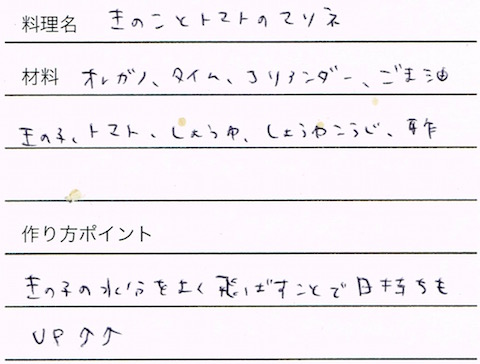 料理名 きのことトマトのマリネ
材料 オレガノ、タイム、コリアンダー、ごま油
きの子、トマト、しょうゆ、しょうゆこうじ、酢
作り方ポイント
きの子の水分をよく飛ばすことで日持ちも
UP↑↑